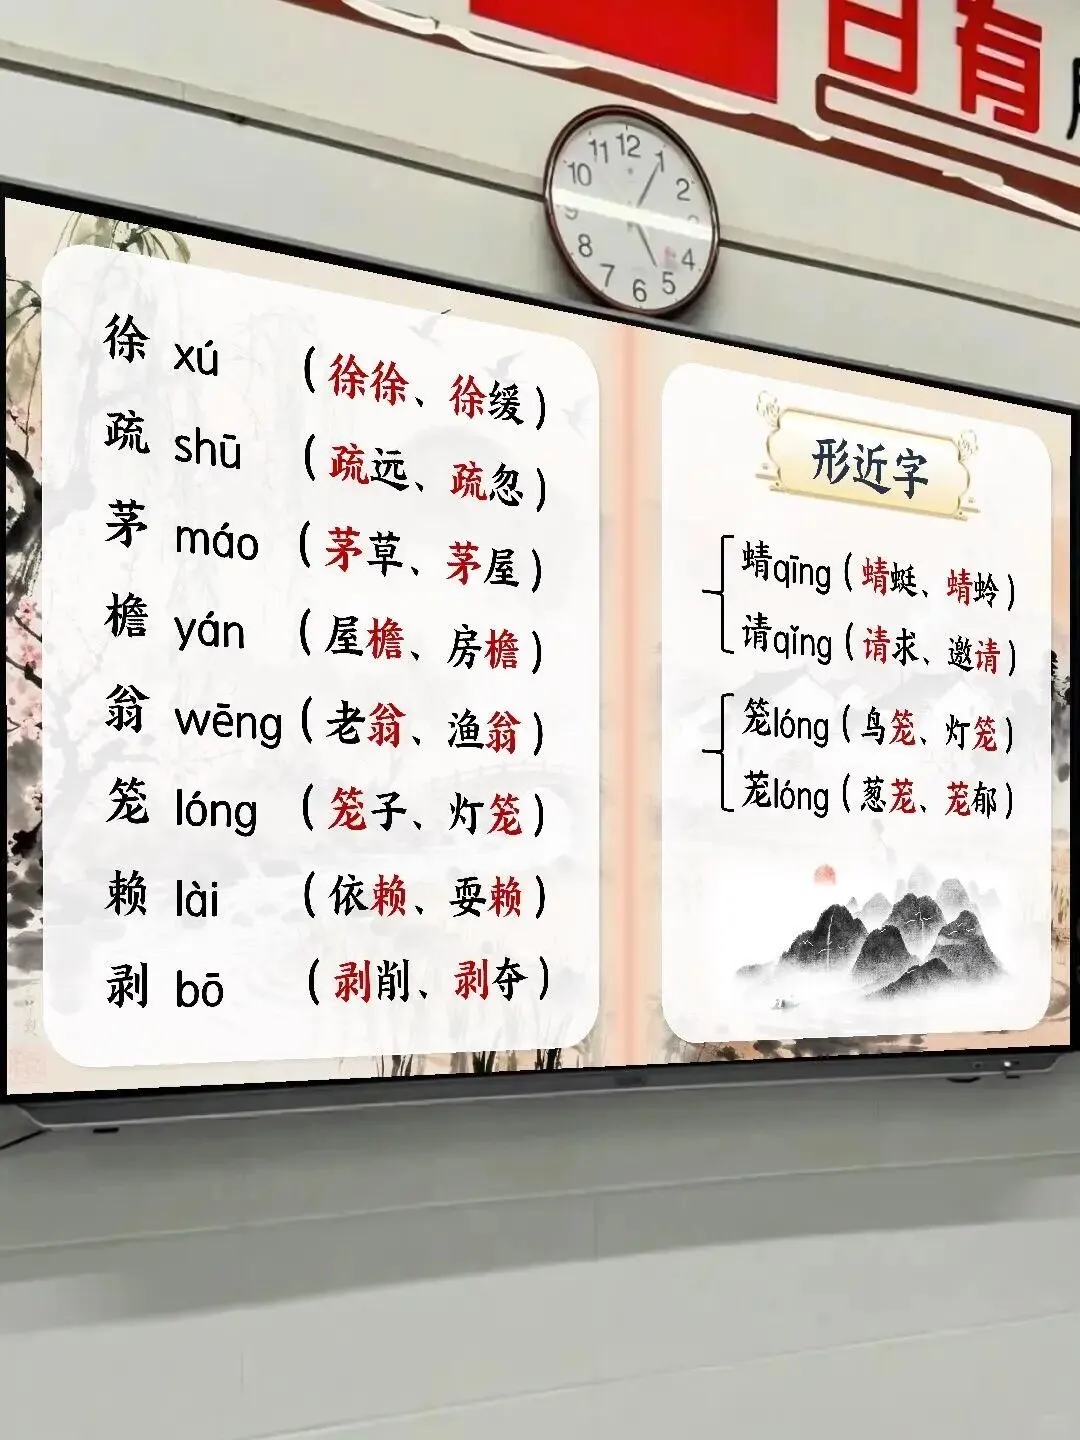 日有
11 12 1
10 2
9 3
8 4
7 6 5
徐 xú （徐徐、徐缓）
疏 shū （疏远、疏忽）
茅 máo （茅草、茅屋）
檐 yán （屋檐、房檐）
翁 wēng（老翁、渔翁）
笼 lóng （笼子、灯笼）
赖 lài （依赖、耍赖）
剥 bō （剥削、剥夺）
形近字
蜻qīng（蜻蜓、蜻蛉）
请qǐng（请求、邀请）
笼lóng（鸟笼、灯笼）
茏lóng（葱茏、茏郁）